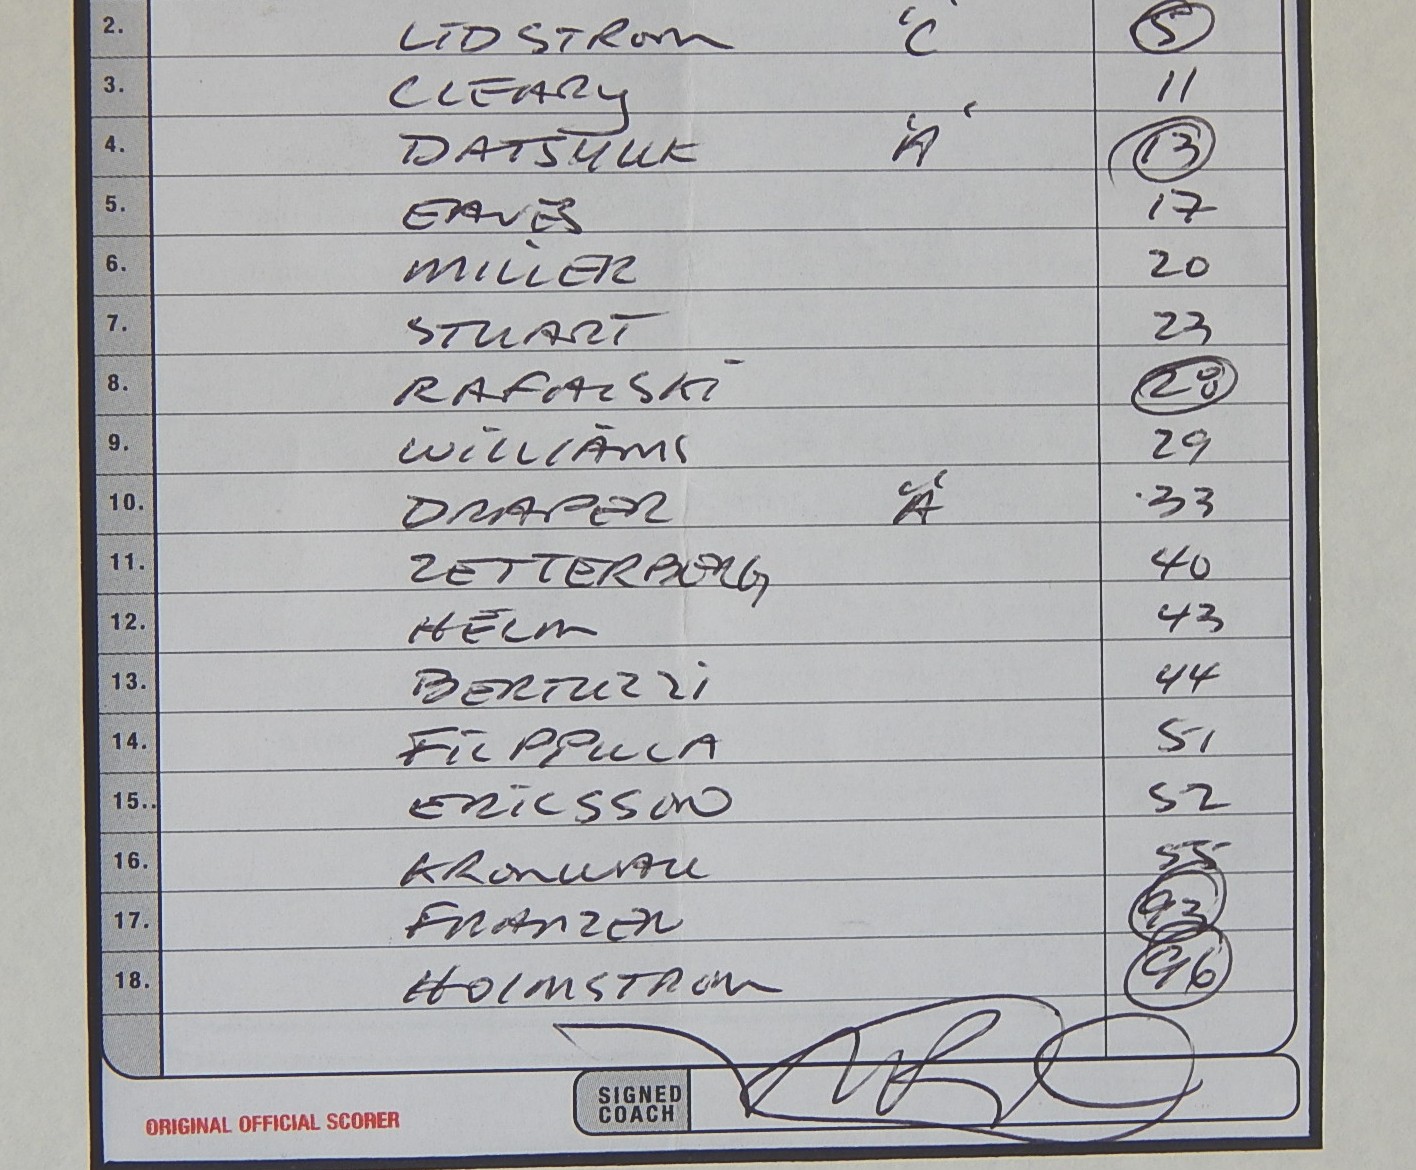 2. LIDSTROM "C" 5
3. CLEARY 11
4. DATSYUK "A" 13
5. EAVES 17
6. MILLER 20
7. STUART 23
8. RAFALSKI 28
9. WILLIAMS 29
10. DRAPER "A" 33
11. ZETTERBERG 40
12. HELM 43
13. BERTUZZI 44
14. FILPPULA 51
15. ERICSSON 52
16. KRONWALL 55
17. FRANZEN 93
18. HOLMSTROM 96
SIGNED
COACH
ORIGINAL OFFICIAL SCORER